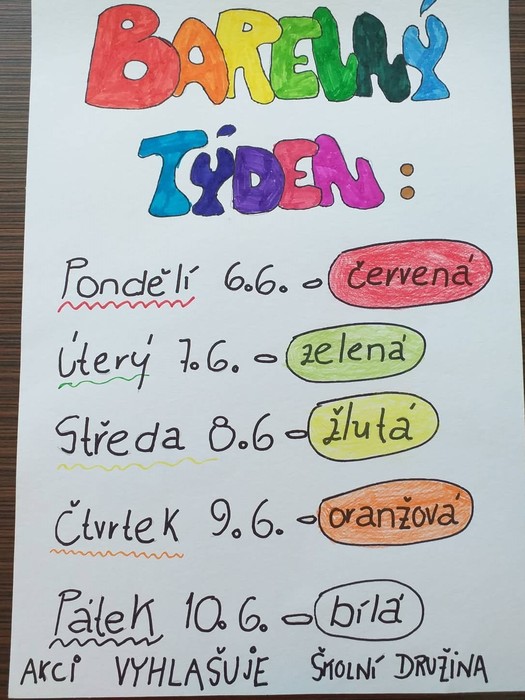 BAREVNÝ
TÝDEN:
Pondělí 6.6. - červená
Úterý 7.6. - zelená
Středa 8.6 - žlutá
Čtvrtek 9.6. - oranžová
Pátek 10.6. - bílá
AKCI VYHLAŠUJE ŠKOLNÍ DRUŽINA